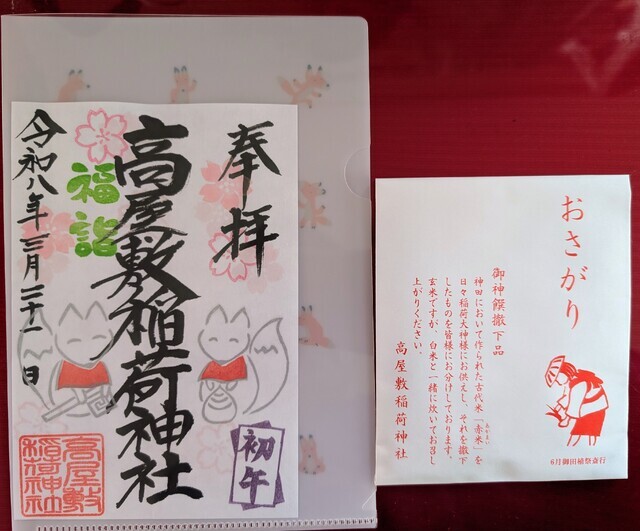 奉拝
高屋敷稲荷神社
福詣
令和八年三月二十一日
初午
高屋敷
稲荷神社
おさがり
御神饌撤下品
神田において作られた古代米「赤米」を
日々稲荷大神様にお供えし、それを撤下
したものを皆様にお分けしております。
玄米ですが、白米と一緒に炊いてお召し
上がりください。
高屋敷稲荷神社
6月御田植祭斎行